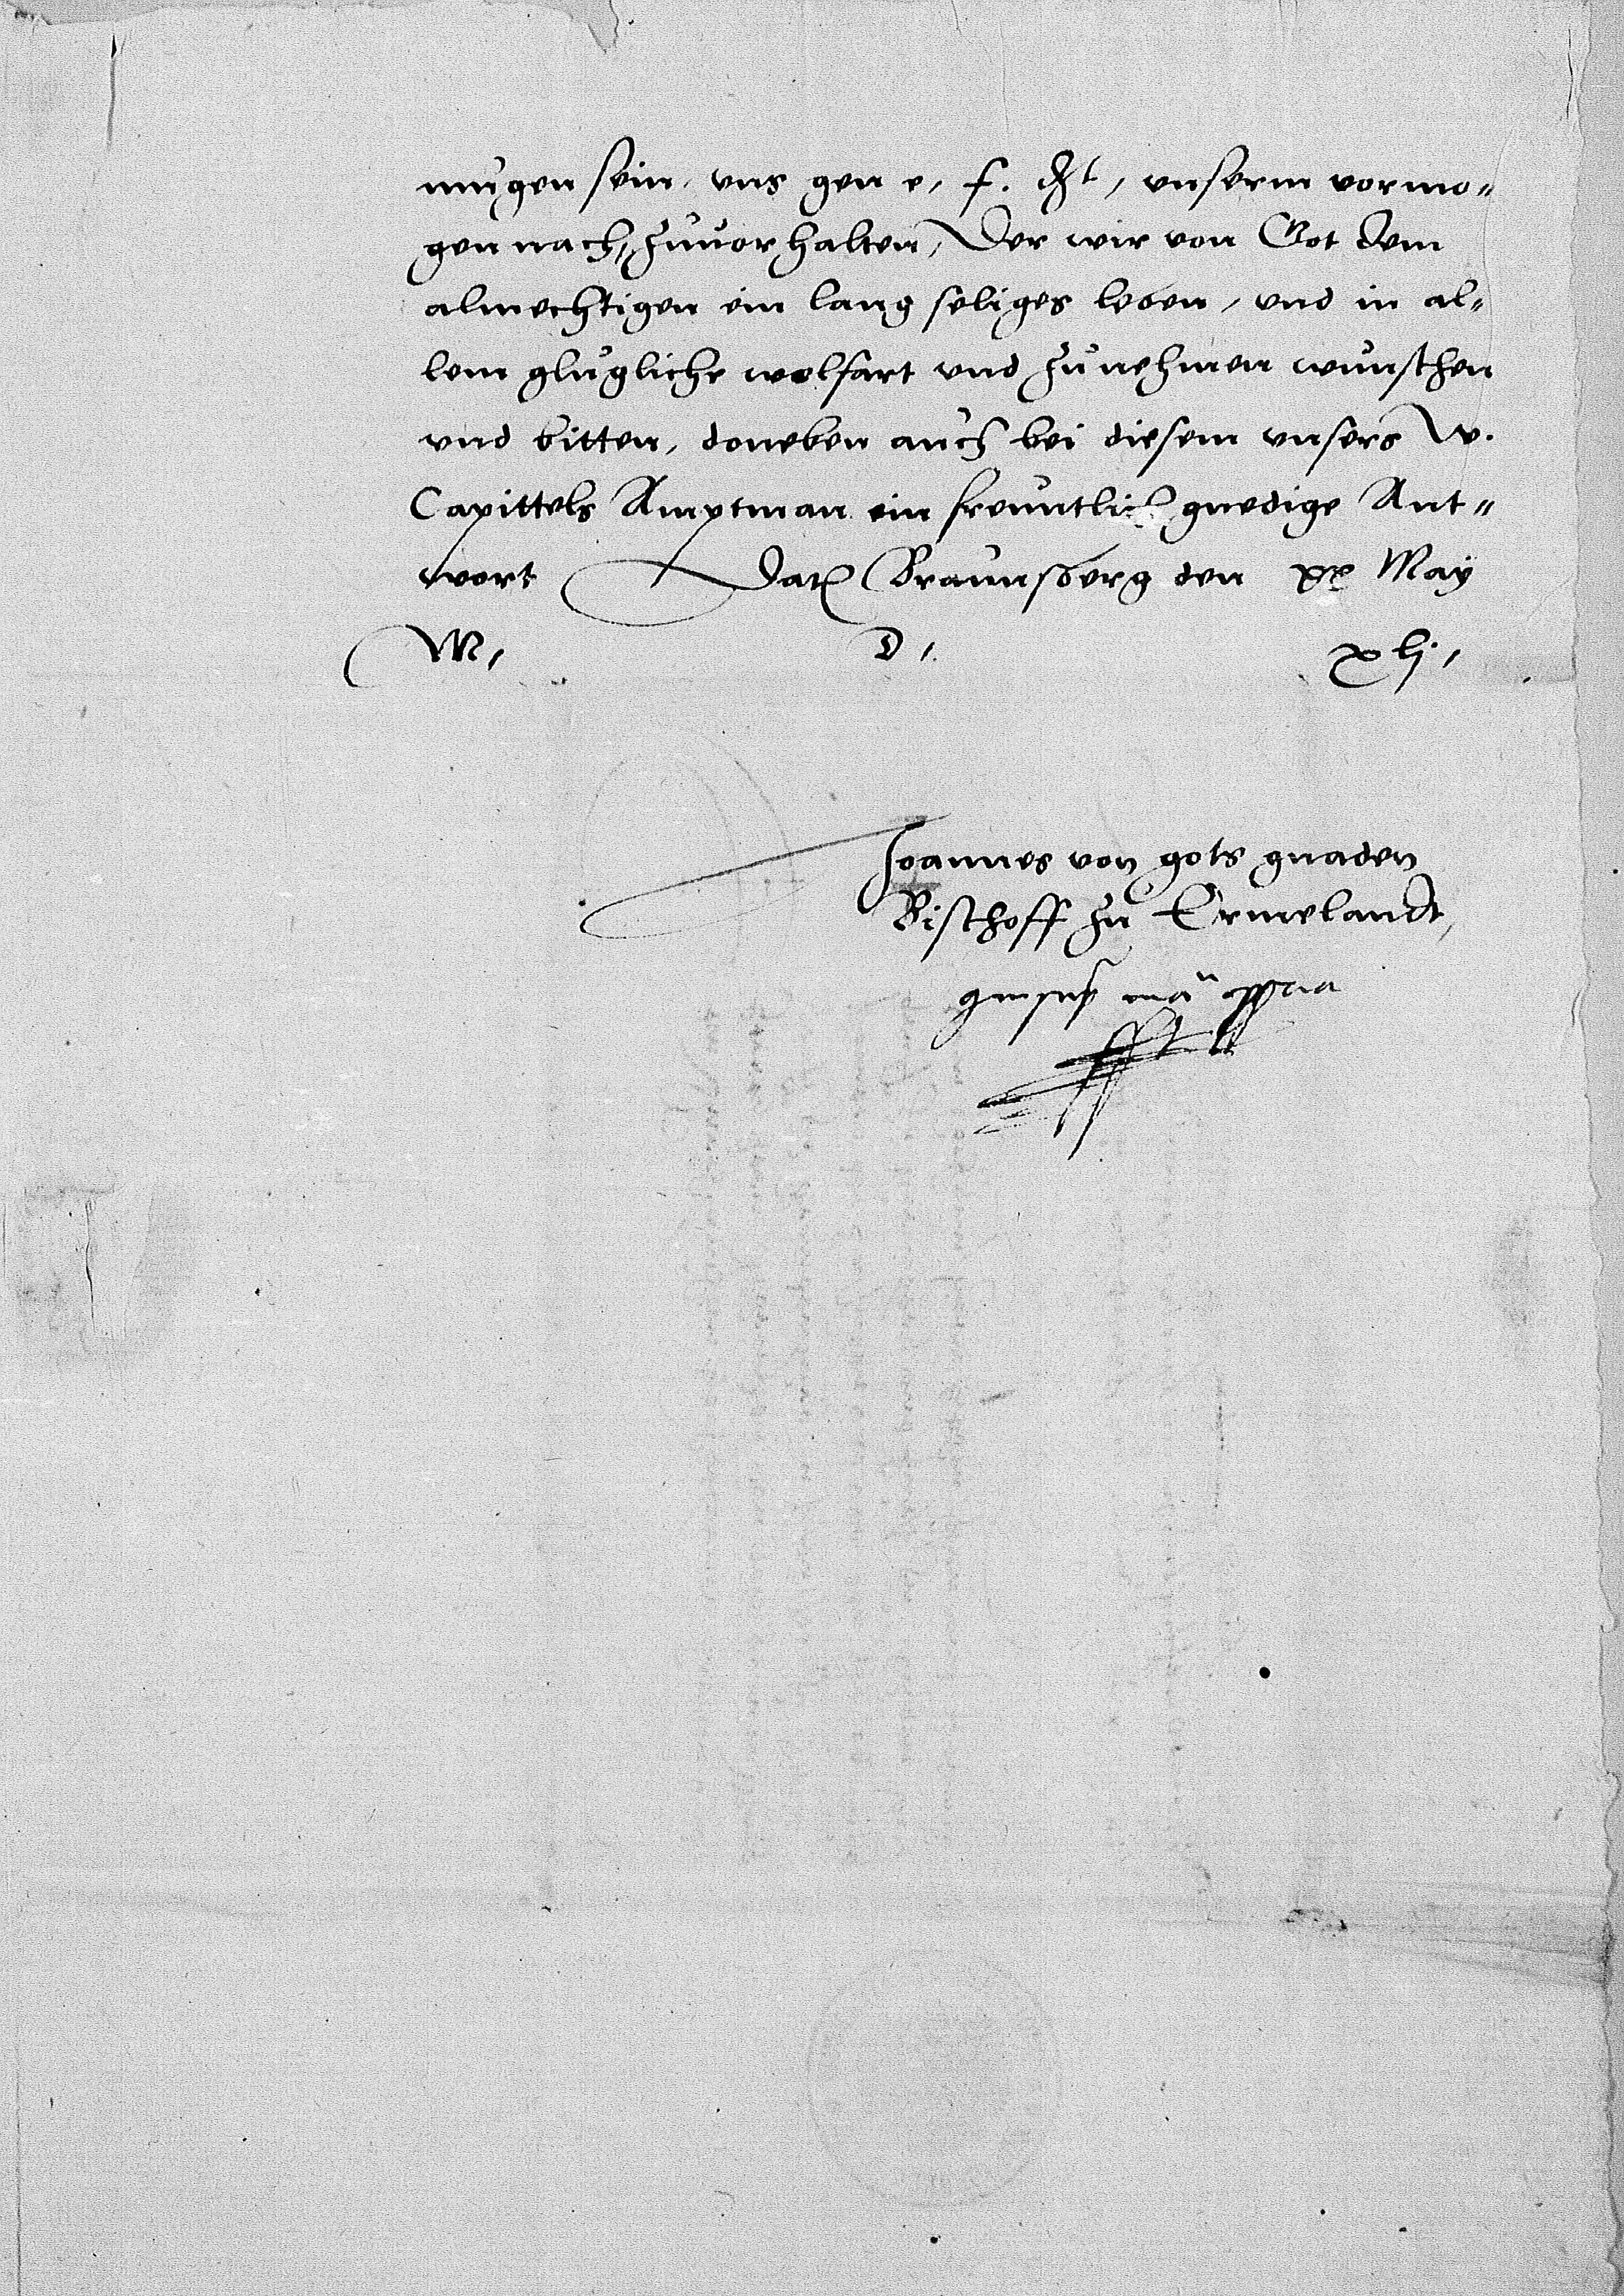 mugen sein, uns gen e, f. d t, unserm vormo=
gen nach, zuvorhalten, Der wir von Got dem
almechtigen ein lang seliges leben, und in al=
lem glugliche wolfart und zunehmen wunschen
und bitten, doneben auch bei diesem unsers W.
Capittels Amptman ein freuntlich gnedige Ant=
wort Dat Braunsberg den xx May
M, D, xlj,
Joannes von gots gnaden
Bischoff zu Ermelandt,